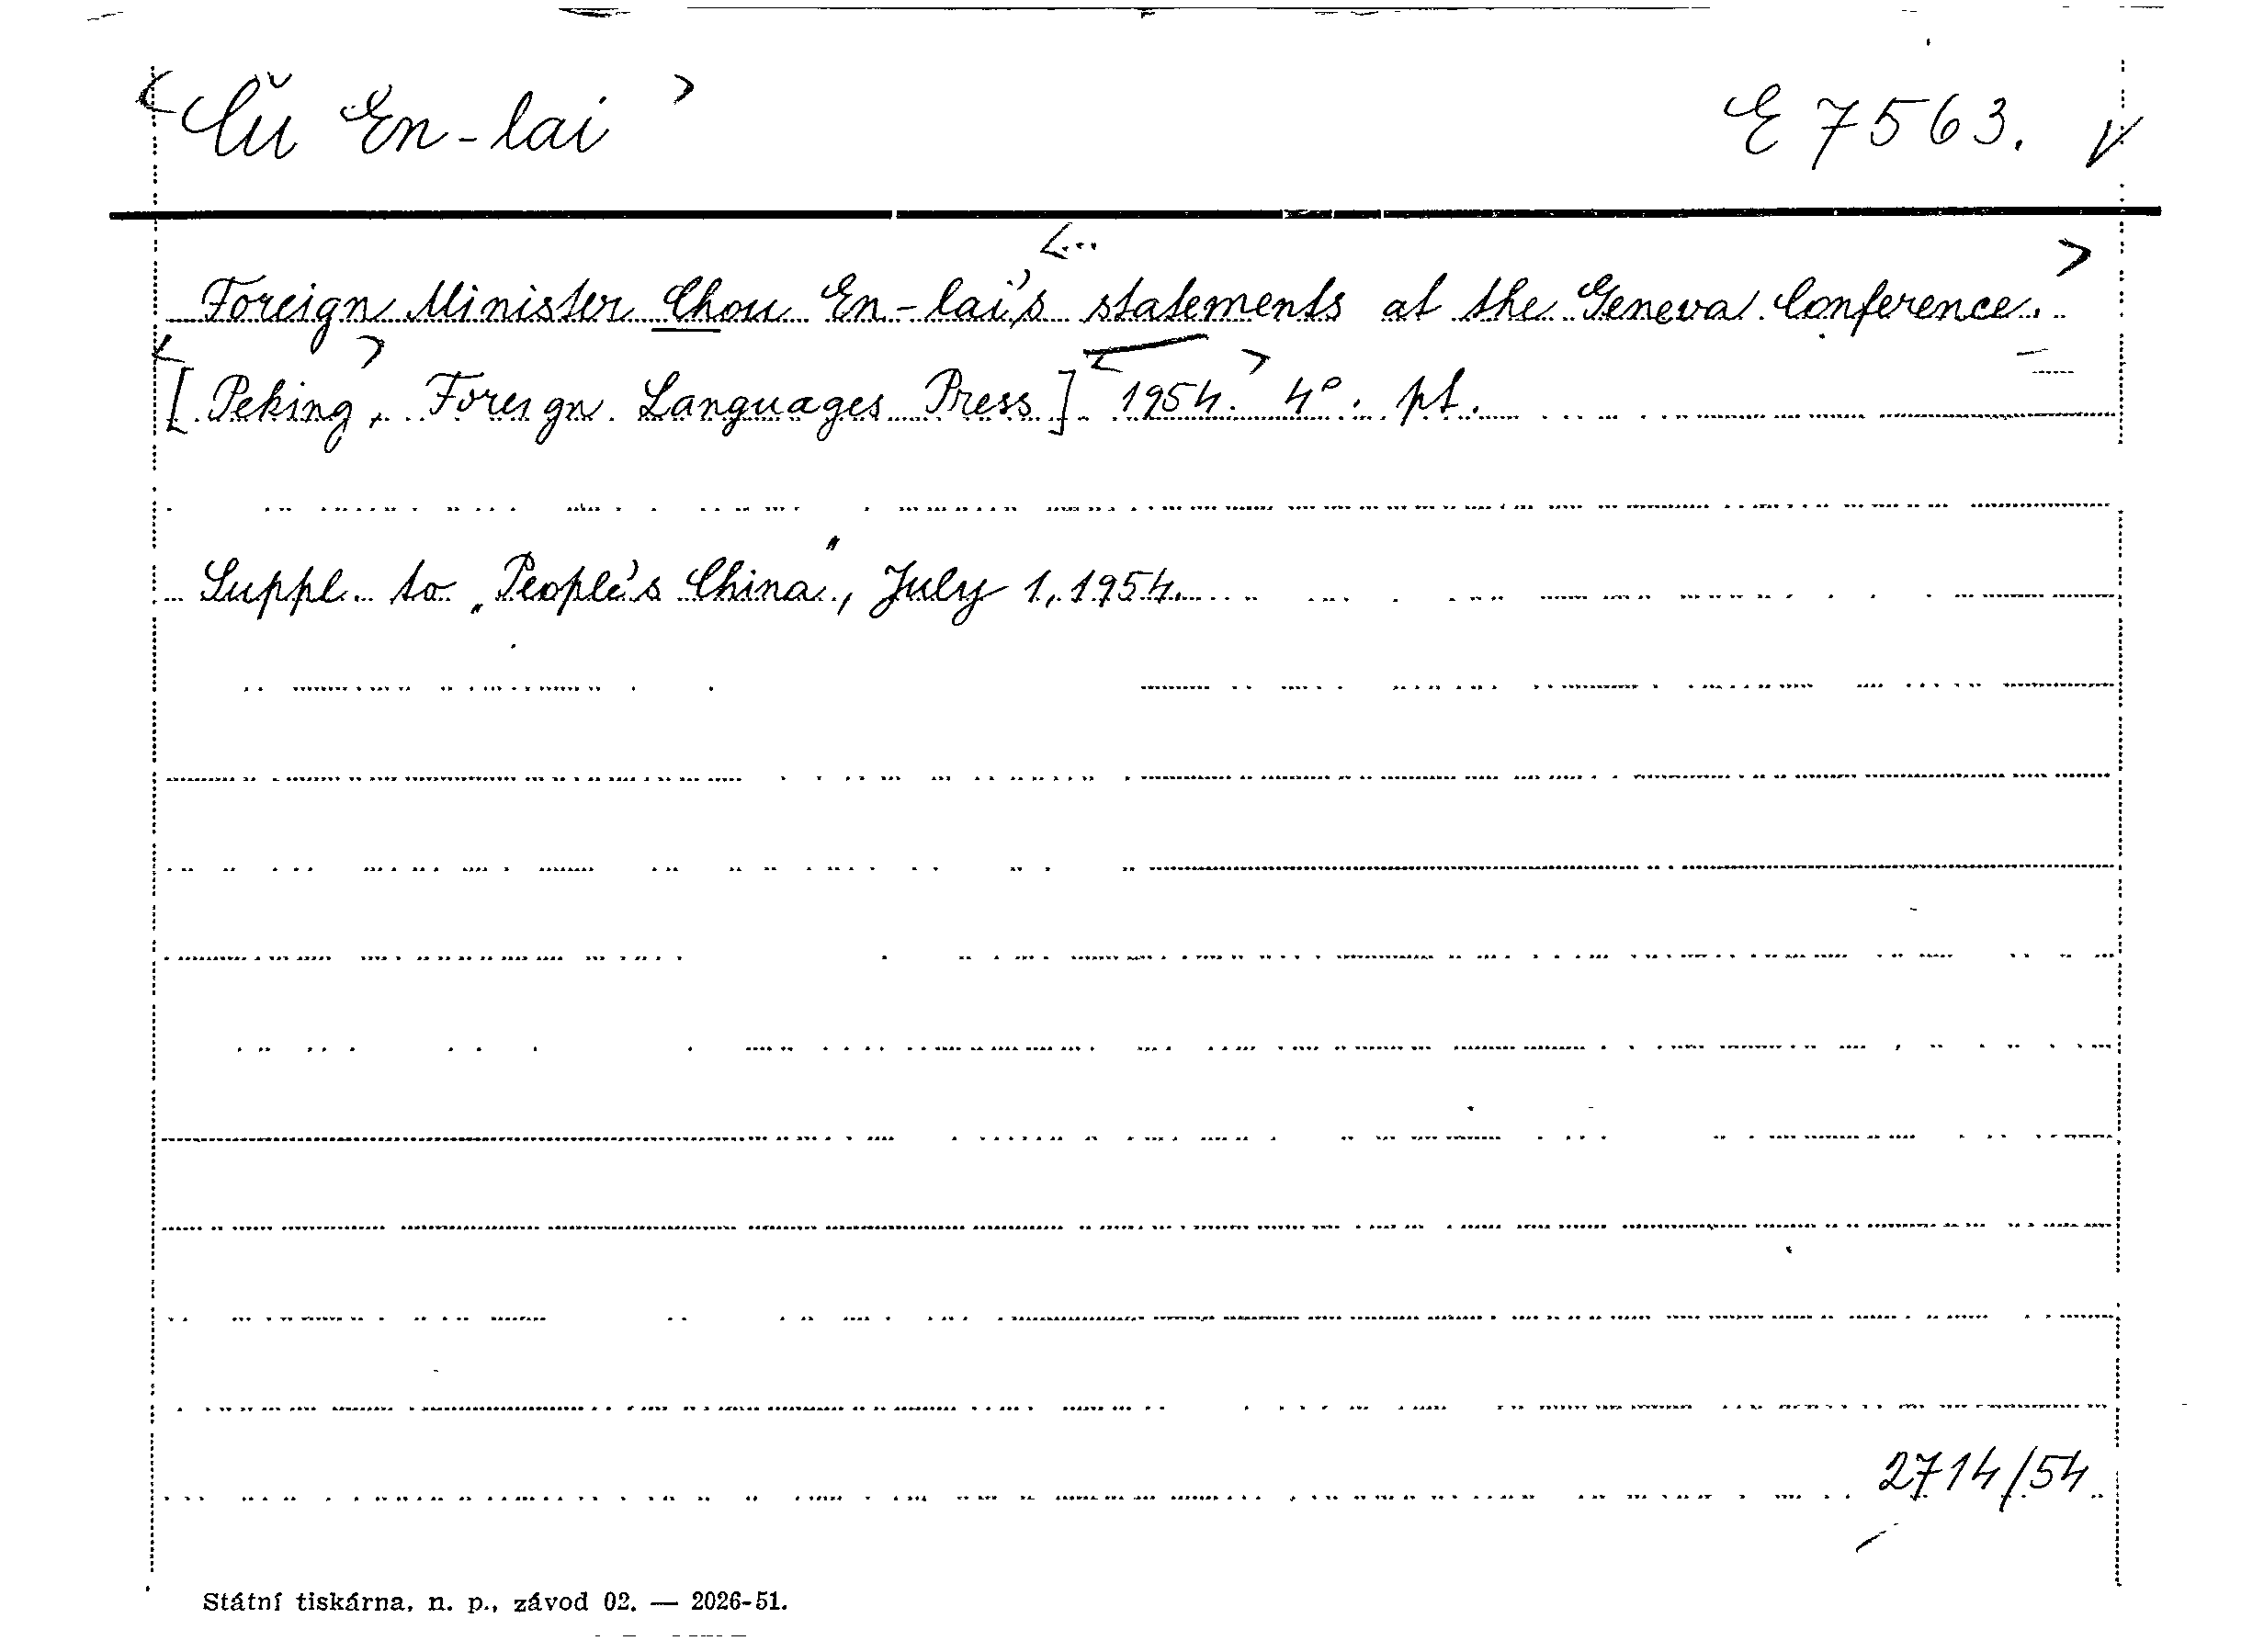 <Čŭ En-lai> E 7563. V
<...
Foreign Minister Chou En-lai's statements at the Geneva Conference.>
<[Peking>, Foreign Languages Press] <1954.> 4°. pt.
Suppl. to „People's China", July 1, 1954.
2714/54
Státní tiskárna, n. p., závod 02. — 2026-51.